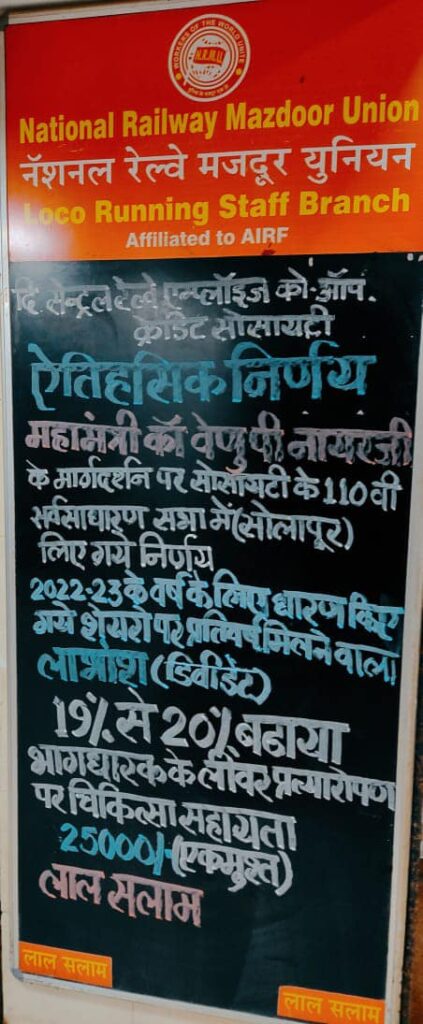 WORKERS OF THE WORLD UNITE
N.R.M.U.
National Railway Mazdoor Union
नॅशनल रेल्वे मजदूर युनियन
Loco Running Staff Branch
Affiliated to AIRF
दि सेन्ट्रल रेल्वे एम्प्लॉइज को-ऑप.
क्रेडिट सोसायटी
ऐतिहसिक निर्णय
महामंत्री कॉ वेणु पी नायरजी
के मार्गदर्शन पर सोसायटी के 110 वी
सर्वसाधारण सभा में (सोलापूर)
लिए गये निर्णय
2022-23 के वर्ष के लिए धारण किए
गये शेयरो पर प्रतिवर्ष मिलने वाला
लाभांश (डिवीडेंट)
19% से 20% बनाया
भागधारक के लीवर प्रत्यारोपण
पर चिकित्सा सहायता
25000/- (एकमुश्त)
लाल सलाम
लाल सलाम
लाल सलाम